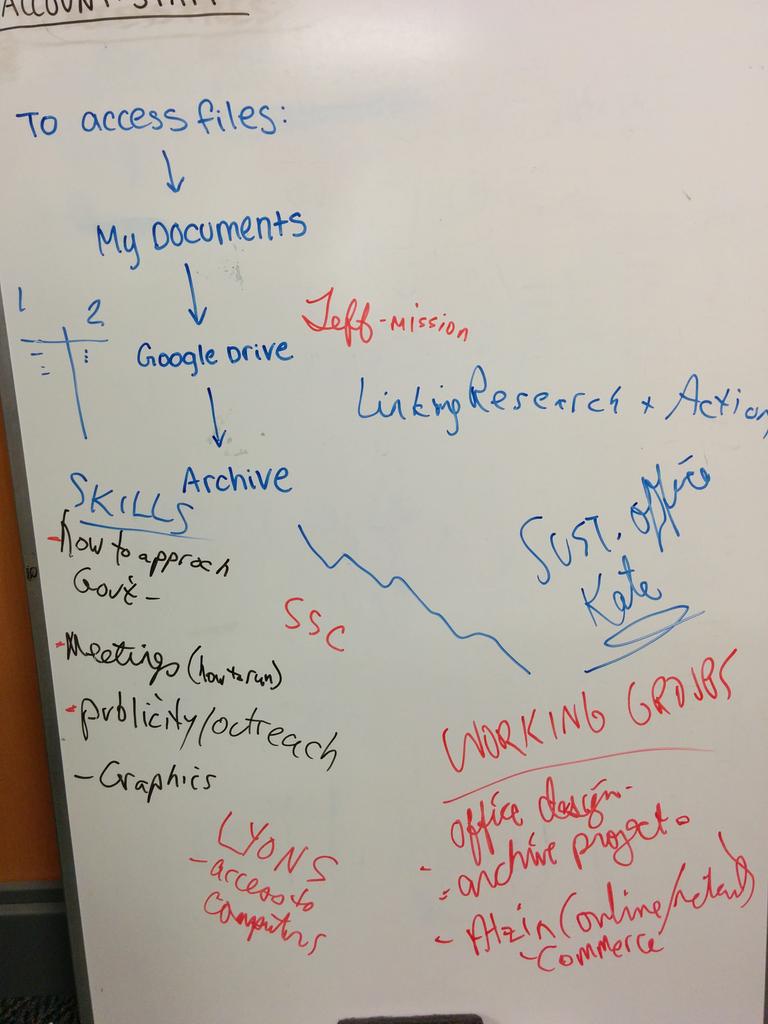 ACCOUNT: STAFF
To access files:
My Documents
1 2
Google Drive
Jeff-mission
Linking Research + Action
Archive
SKILLS
- how to approch
Gov't -
Sust. office
Kate
SSC
- Meetings (how to run)
- publicity/outreach
- Graphics
WORKING GROUPS
office design -
- archive project -
- (online/retail)
- Commerce
LYONS
- access to
computers